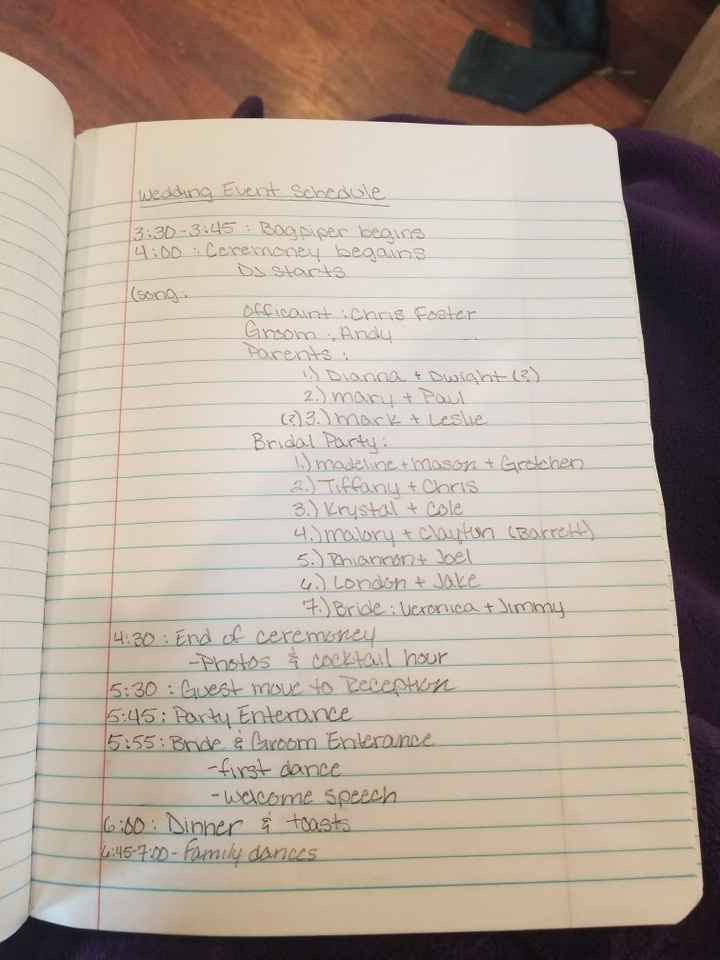 Wedding Event Schedule
3:30-3:45 : Bagpiper begins
4:00 : Ceremoney begains
DJ starts
(song.
Officaint : Chris Foster
Groom : Andy
Parents :
1.) Dianna + Dwight (?)
2.) Mary + Paul
(?) 3.) Mark + Leslie
Bridal Party :
1.) Madeline + Mason + Gretchen
2.) Tiffany + Chris
3.) Krystal + Cole
4.) Malory + Clayton (Barrett)
5.) Rhiannon + Joel
6.) London + Jake
7.) Bride : Veronica + Jimmy
4:30 : End of ceremoney
- Photos & cocktail hour
5:30 : Guest move to Reception
5:45 : Party Enterance
5:55 : Bride & Groom Enterance
- first dance
- welcome speech
6:00 : Dinner & toasts
6:45-7:00 - Family dances